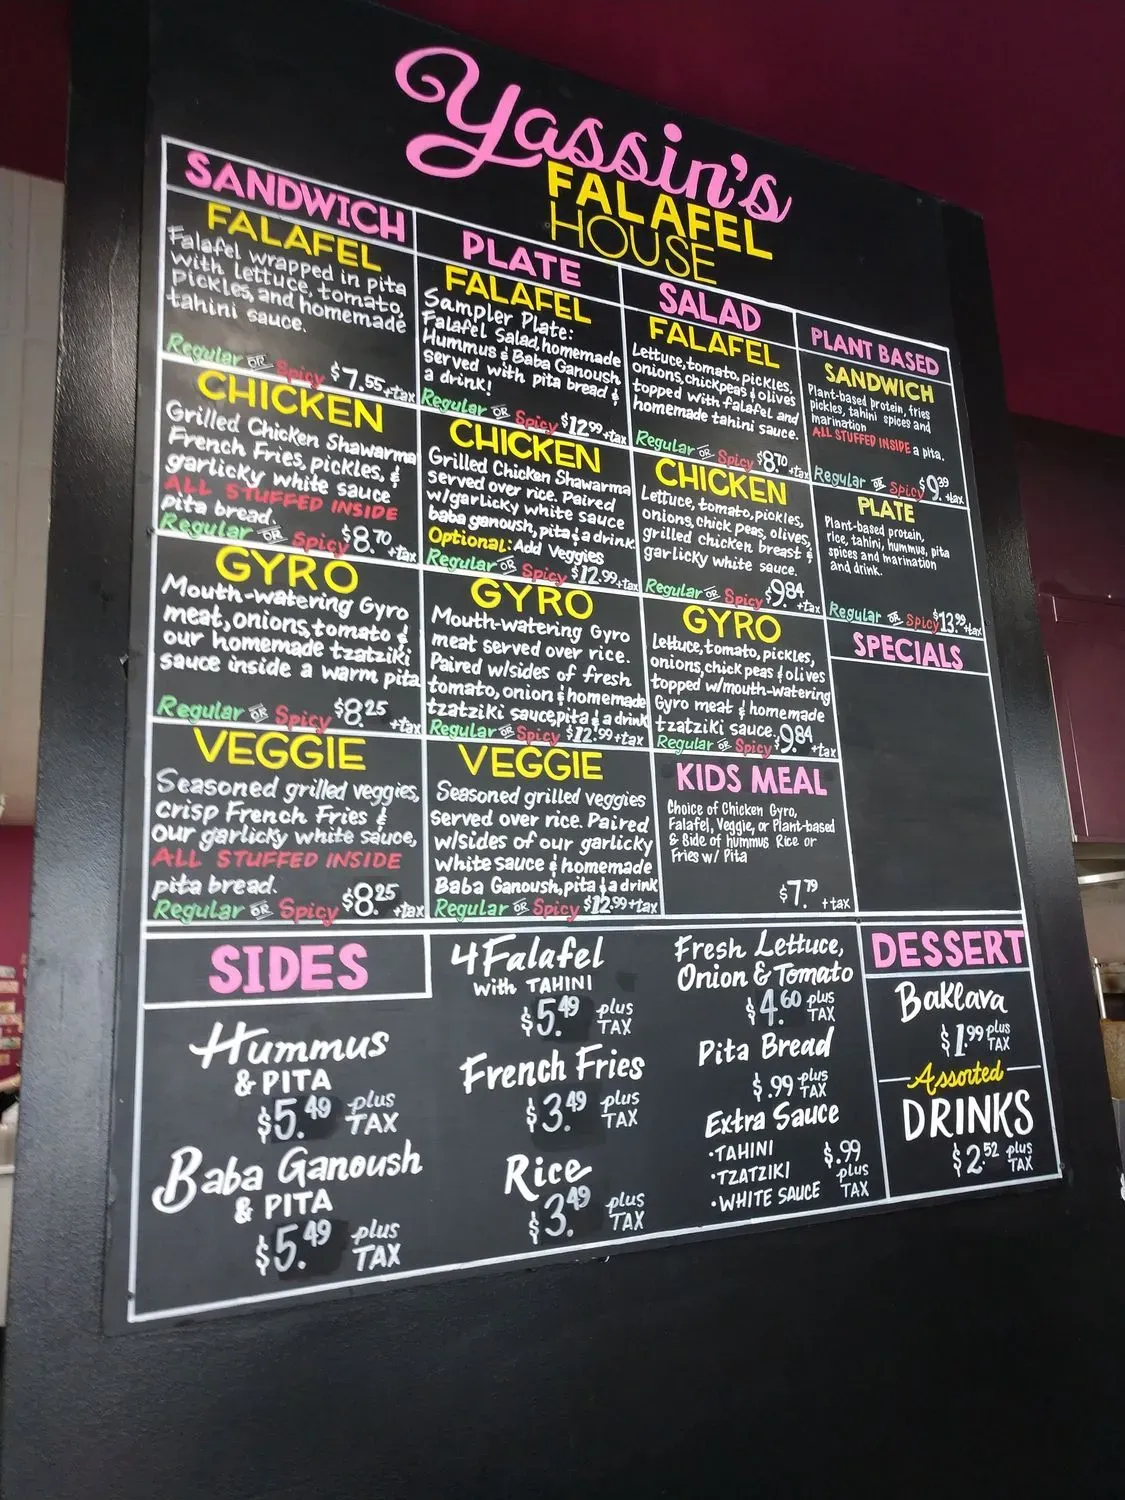 Yassin's
FALAFEL
HOUSE
SANDWICH
FALAFEL
Falafel wrapped in pita
with lettuce, tomato,
pickles, and homemade
tahini sauce.
Regular OR Spicy $7.55 +tax
CHICKEN
Grilled Chicken Shawarma
French Fries, pickles, &
garlicky white sauce
ALL STUFFED INSIDE
pita bread.
Regular OR Spicy $8.70 +tax
GYRO
Mouth-watering Gyro
meat, onions, tomato &
our homemade tzatziki
sauce inside a warm pita
Regular OR Spicy $8.25 +tax
VEGGIE
Seasoned grilled veggies,
crisp French Fries &
our garlicky white sauce,
ALL STUFFED INSIDE
pita bread.
Regular OR Spicy $8.25 +tax
PLATE
FALAFEL
Sampler Plate:
Falafel Salad, homemade
Hummus & Baba Ganoush
served with pita bread &
a drink!
Regular OR Spicy $12.99 +tax
CHICKEN
Grilled Chicken Shawarma
served over rice. Paired
w/garlicky white sauce
baba ganoush, pita & a drink
Optional: Add Veggies
Regular OR Spicy $12.99 +tax
GYRO
Mouth-watering Gyro
meat served over rice.
Paired w/sides of fresh
tomato, onion & homemade
tzatziki sauce, pita & a drink
Regular OR Spicy $12.99 +tax
VEGGIE
Seasoned grilled veggies
served over rice. Paired
w/sides of our garlicky
white sauce & homemade
Baba Ganoush, pita & a drink
Regular OR Spicy $12.99 +tax
SALAD
FALAFEL
Lettuce, tomato, pickles,
onions, chickpeas & olives
topped with falafel and
homemade tahini sauce.
Regular OR Spicy $8.70 +tax
CHICKEN
Lettuce, tomato, pickles,
onions, chick peas, olives,
grilled chicken breast &
garlicky white sauce.
Regular OR Spicy $9.84 +tax
GYRO
Lettuce, tomato, pickles,
onions, chick peas & olives
topped w/mouth-watering
Gyro meat & homemade
tzatziki sauce.
Regular OR Spicy $9.84 +tax
KIDS MEAL
Choice of Chicken Gyro,
Falafel, Veggie, or Plant-based
& Side of hummus Rice or
Fries w/ Pita
$7.79 +tax
PLANT BASED
SANDWICH
Plant-based protein, fries
pickles, tahini spices and
marination
ALL STUFFED INSIDE a pita.
Regular OR Spicy $9.39 +tax
PLATE
Plant-based protein,
rice, tahini, hummus, pita
spices and marination
and drink.
Regular OR Spicy $13.99 +tax
SPECIALS
SIDES
Hummus
& PITA
$5.49 plus TAX
Baba Ganoush
& PITA
$5.49 plus TAX
4 Falafel
with TAHINI
$5.49 plus TAX
French Fries
$3.49 plus TAX
Rice
$3.49 plus TAX
Fresh Lettuce,
Onion & Tomato
$4.60 plus TAX
Pita Bread
$.99 plus TAX
Extra Sauce
•TAHINI
•TZATZIKI
•WHITE SAUCE
$.99 plus TAX
DESSERT
Baklava
$1.99 plus TAX
Assorted
DRINKS
$2.52 plus TAX